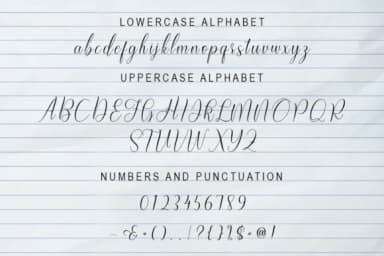 LOWERCASE ALPHABET
abcdefghijklmnopqrstuvwxyz
UPPERCASE ALPHABET
ABCDEFGHIJKLMNOPQR
STUVWXYZ
NUMBERS AND PUNCTUATION
0123456789